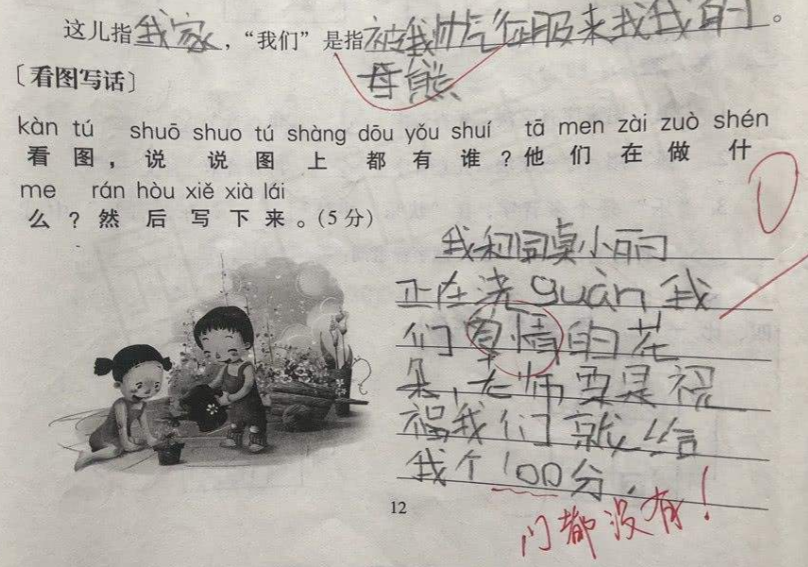 这儿指我家，“我们”是指被我帅气征服来我我的。
母熊
［看图写话］
kàn tú shuō shuo tú shàng dōu yǒu shuí tā men zài zuò shén
看图，说说图上都有谁？他们在做什
me rán hòu xiě xià lái
么？然后写下来。(5分)
0
我和同桌小丽
正在浇guàn我
们爱情的花
朵，老师要是祝
福我们就给
我个100分.
门都没有！
12